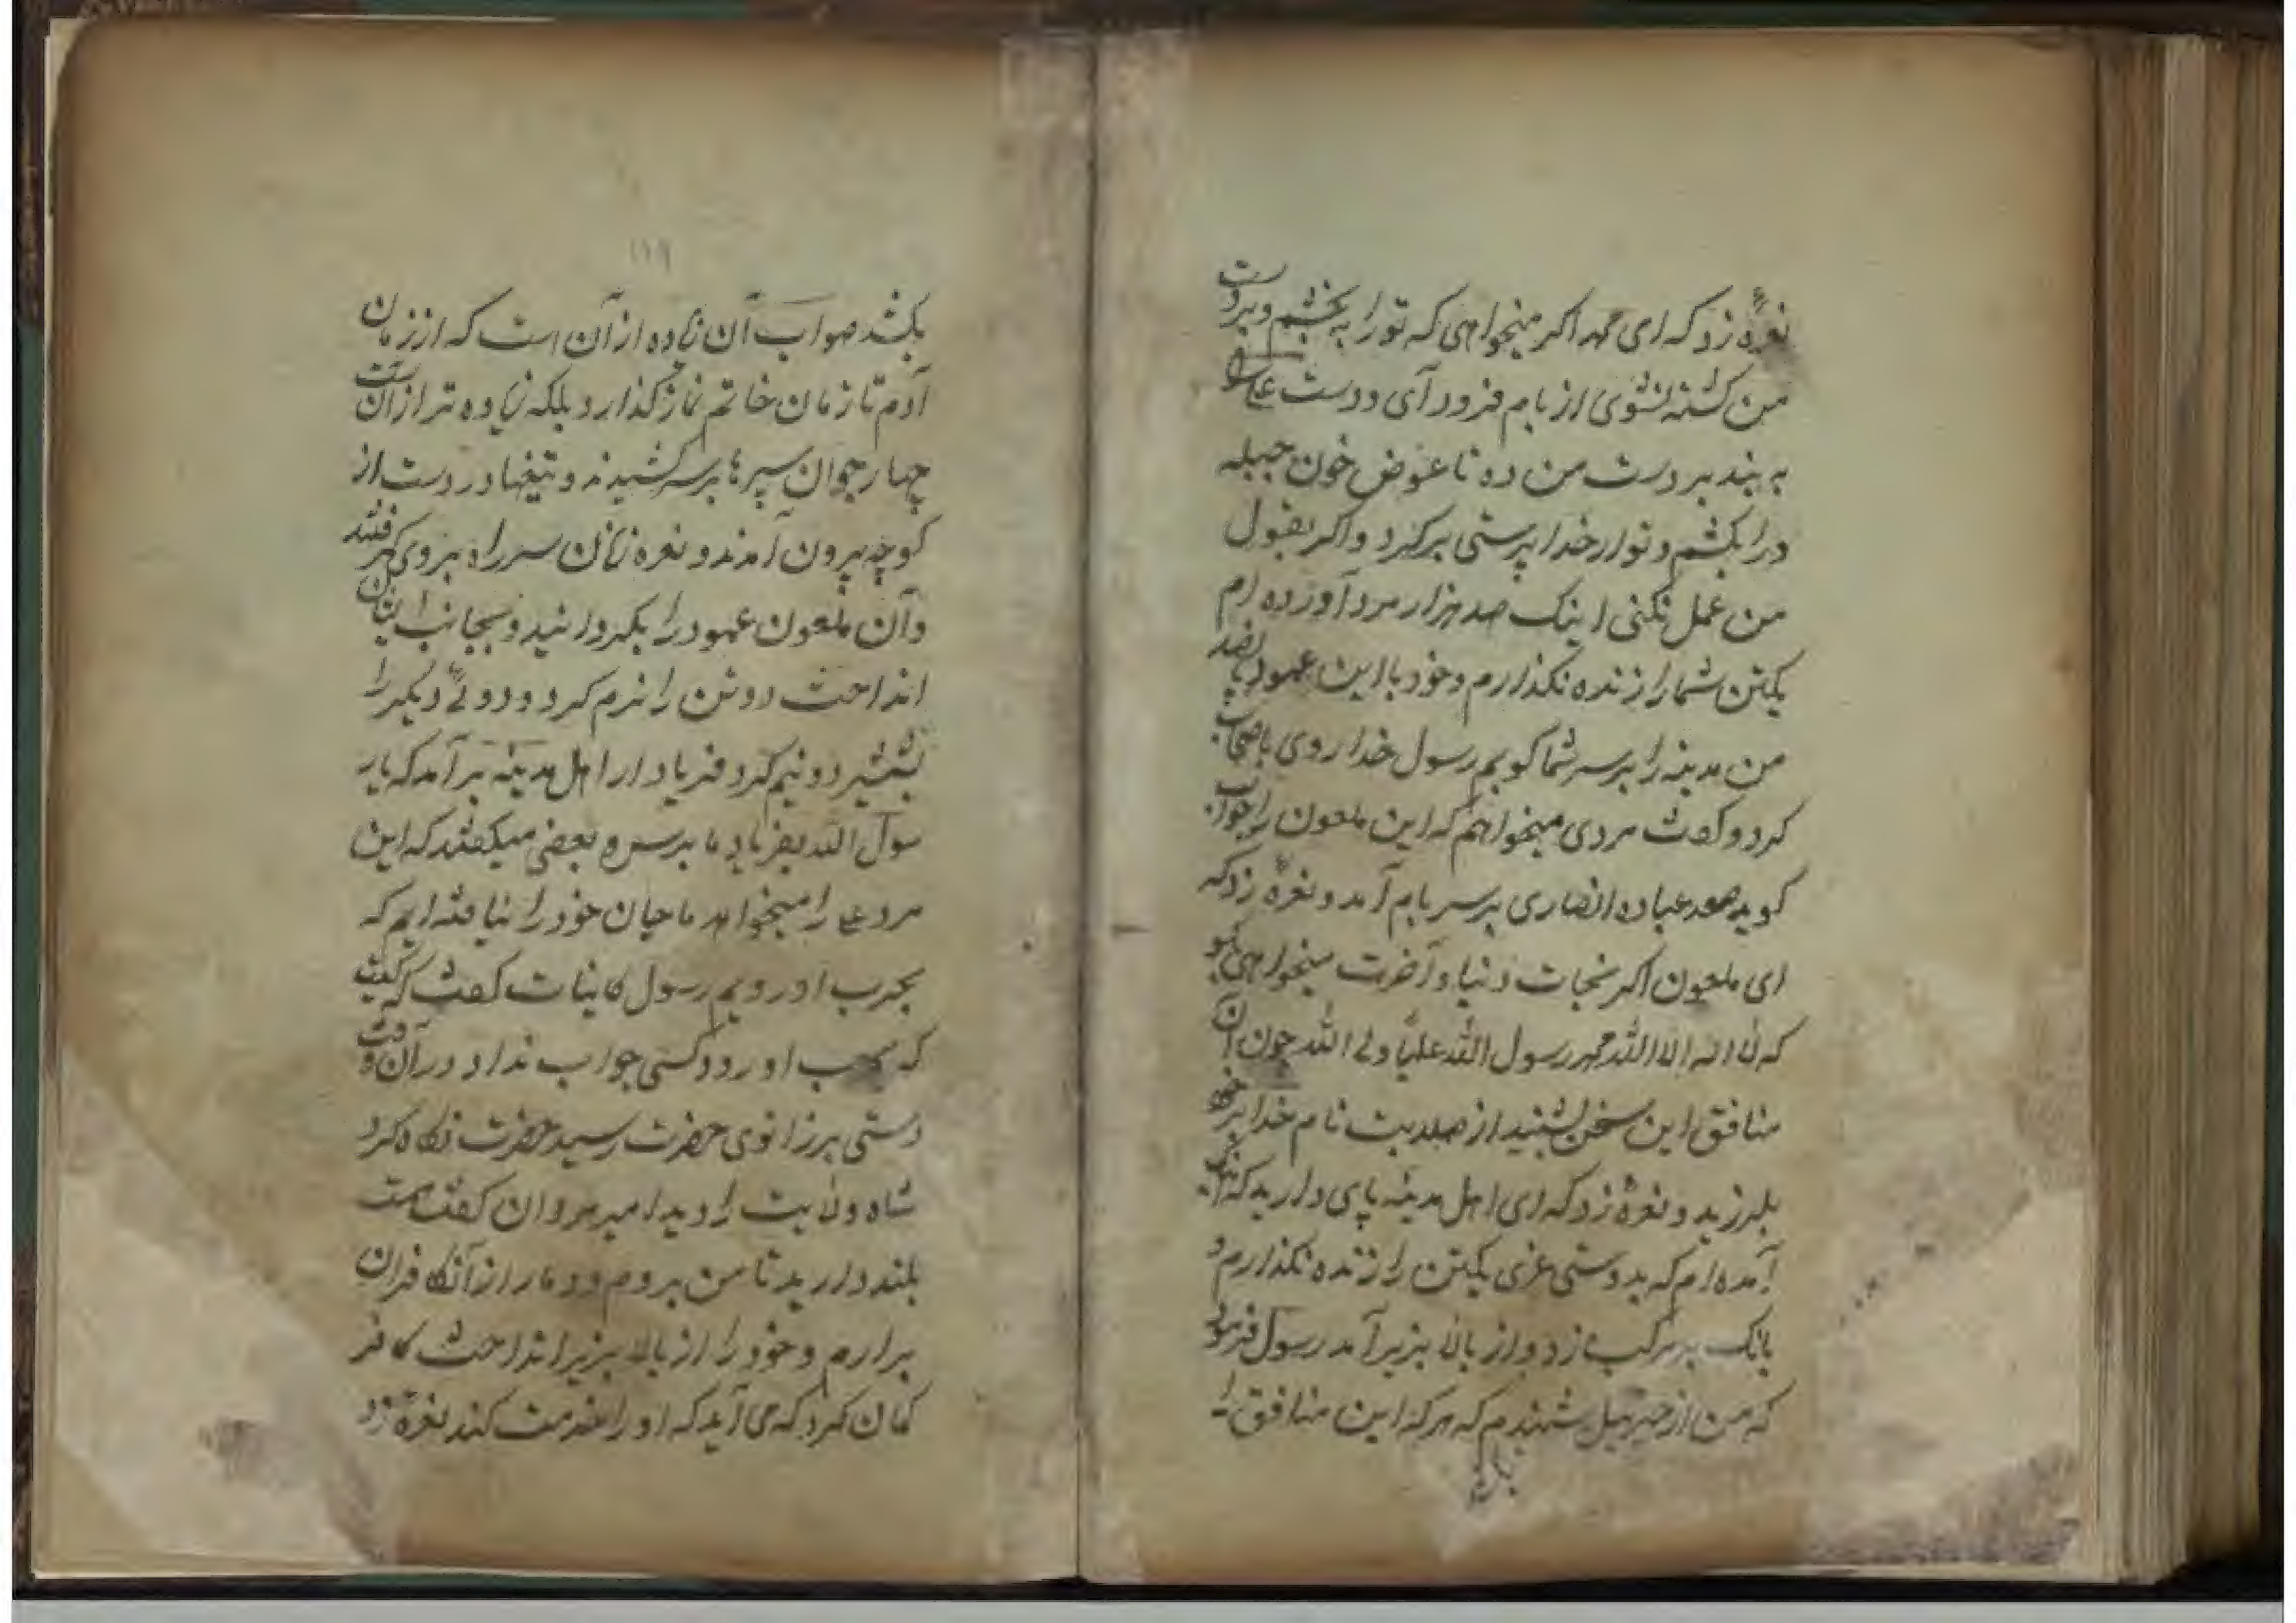 نعرهٔ زد که ای محمد اکر میخواهی که تو را به بخشم و بردست
من کشته نشوی از بام فرود آی و دست علی را
به بند بر دست من ده تا عوض خون جبله
در ابکشم و تو از خدا پرستی برکرد واکر بقول
من عمل نکنی اینک صد هزار مرد آورده ام
یکتن شما را زنده نکذارم و خود با این عمود
من مدینه را بر سر شما کوبم رسول خدا روی باصحاب
کرد و کفت مردی میخواهم که این ملعون را جواب
کوید سعد عباده انصاری بر سر بام آمد و نعرهٔ زد که
ای ملعون اکر نجات دنیا و آخرت میخواهی بکو
که لا اله الا الله محمد رسول الله علیاً ولی الله چون آن
منافق این سخن بشنید از صلابت نام خدا بر خود
بلرزید و نعرهٔ زد که ای اهل مدینه پای دارید که
آمده ام که بدوستی عزی یکتن را زنده نکذارم و
بانک بر مرکب زد و از بالا بزیر آمد رسول فرمود
که من از جبرییل شنیدم که هر که این منافق را
۱۱۹
بکشد صواب آن زیاده از آن است که از زمان
آدم تا زمان خاتم نماز کذارد بلکه زیاده تر از آن است
چهار جوان سپرها بر سر کشیدند و تیغها در دست از
کوچه بیرون آمدند و نعره زنان سر راه بروی کرفتند
وآن ملعون عمود را بکردانید و بجانب ایشان
انداخت دو تن را نرم کرد و دو تٔی دیکر را
بشمشیر دو نیم کرد فریاد از اهل مدینه بر آمد که یار
سول الله بفریاد ما برس و بعضی میکفتند که این
مرد علی را میخواهد ما جان خود را نیافته ایم که
بحرب او رویم رسول کاینات کفت که کیست
که بحرب او رود کسی جواب نداد در آن وقت
دستی بر زانوی حضرت رسید حضرت نکاه کرد
شاه ولایت را دید امیر مردان کفت همت
بلند دارید تا من بروم و دمار از آن کافران
برارم و خود را از بالا بزیر انداخت کافر
کمان کرد که می آید که او را خدمت کند نعرهٔ زد